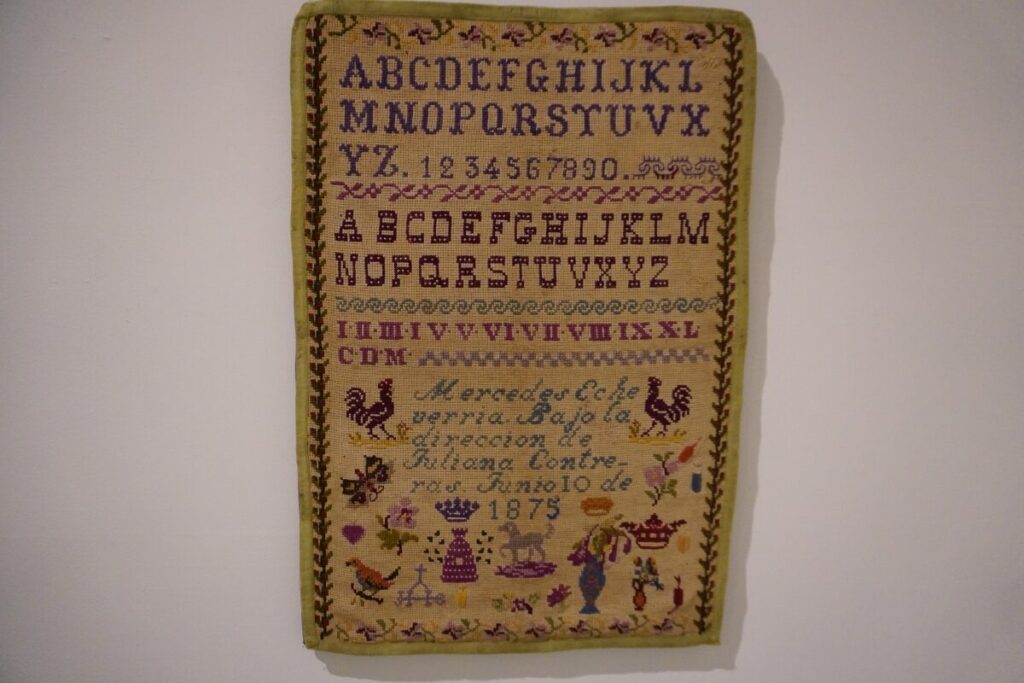 ABCDEFGHIJKL
MNOPQRSTUVX
YZ. 1234567890.
ABCDEFGHIJKLM
NOPQRSTUVXYZ
I·II·III·IV·V·VI·VII·VIII·IX·X·L
C·D·M·
Mercedes Eche
verria. Bajo la
direccion de
Juliana Contre-
ras Junio 10 de
1875
JHS